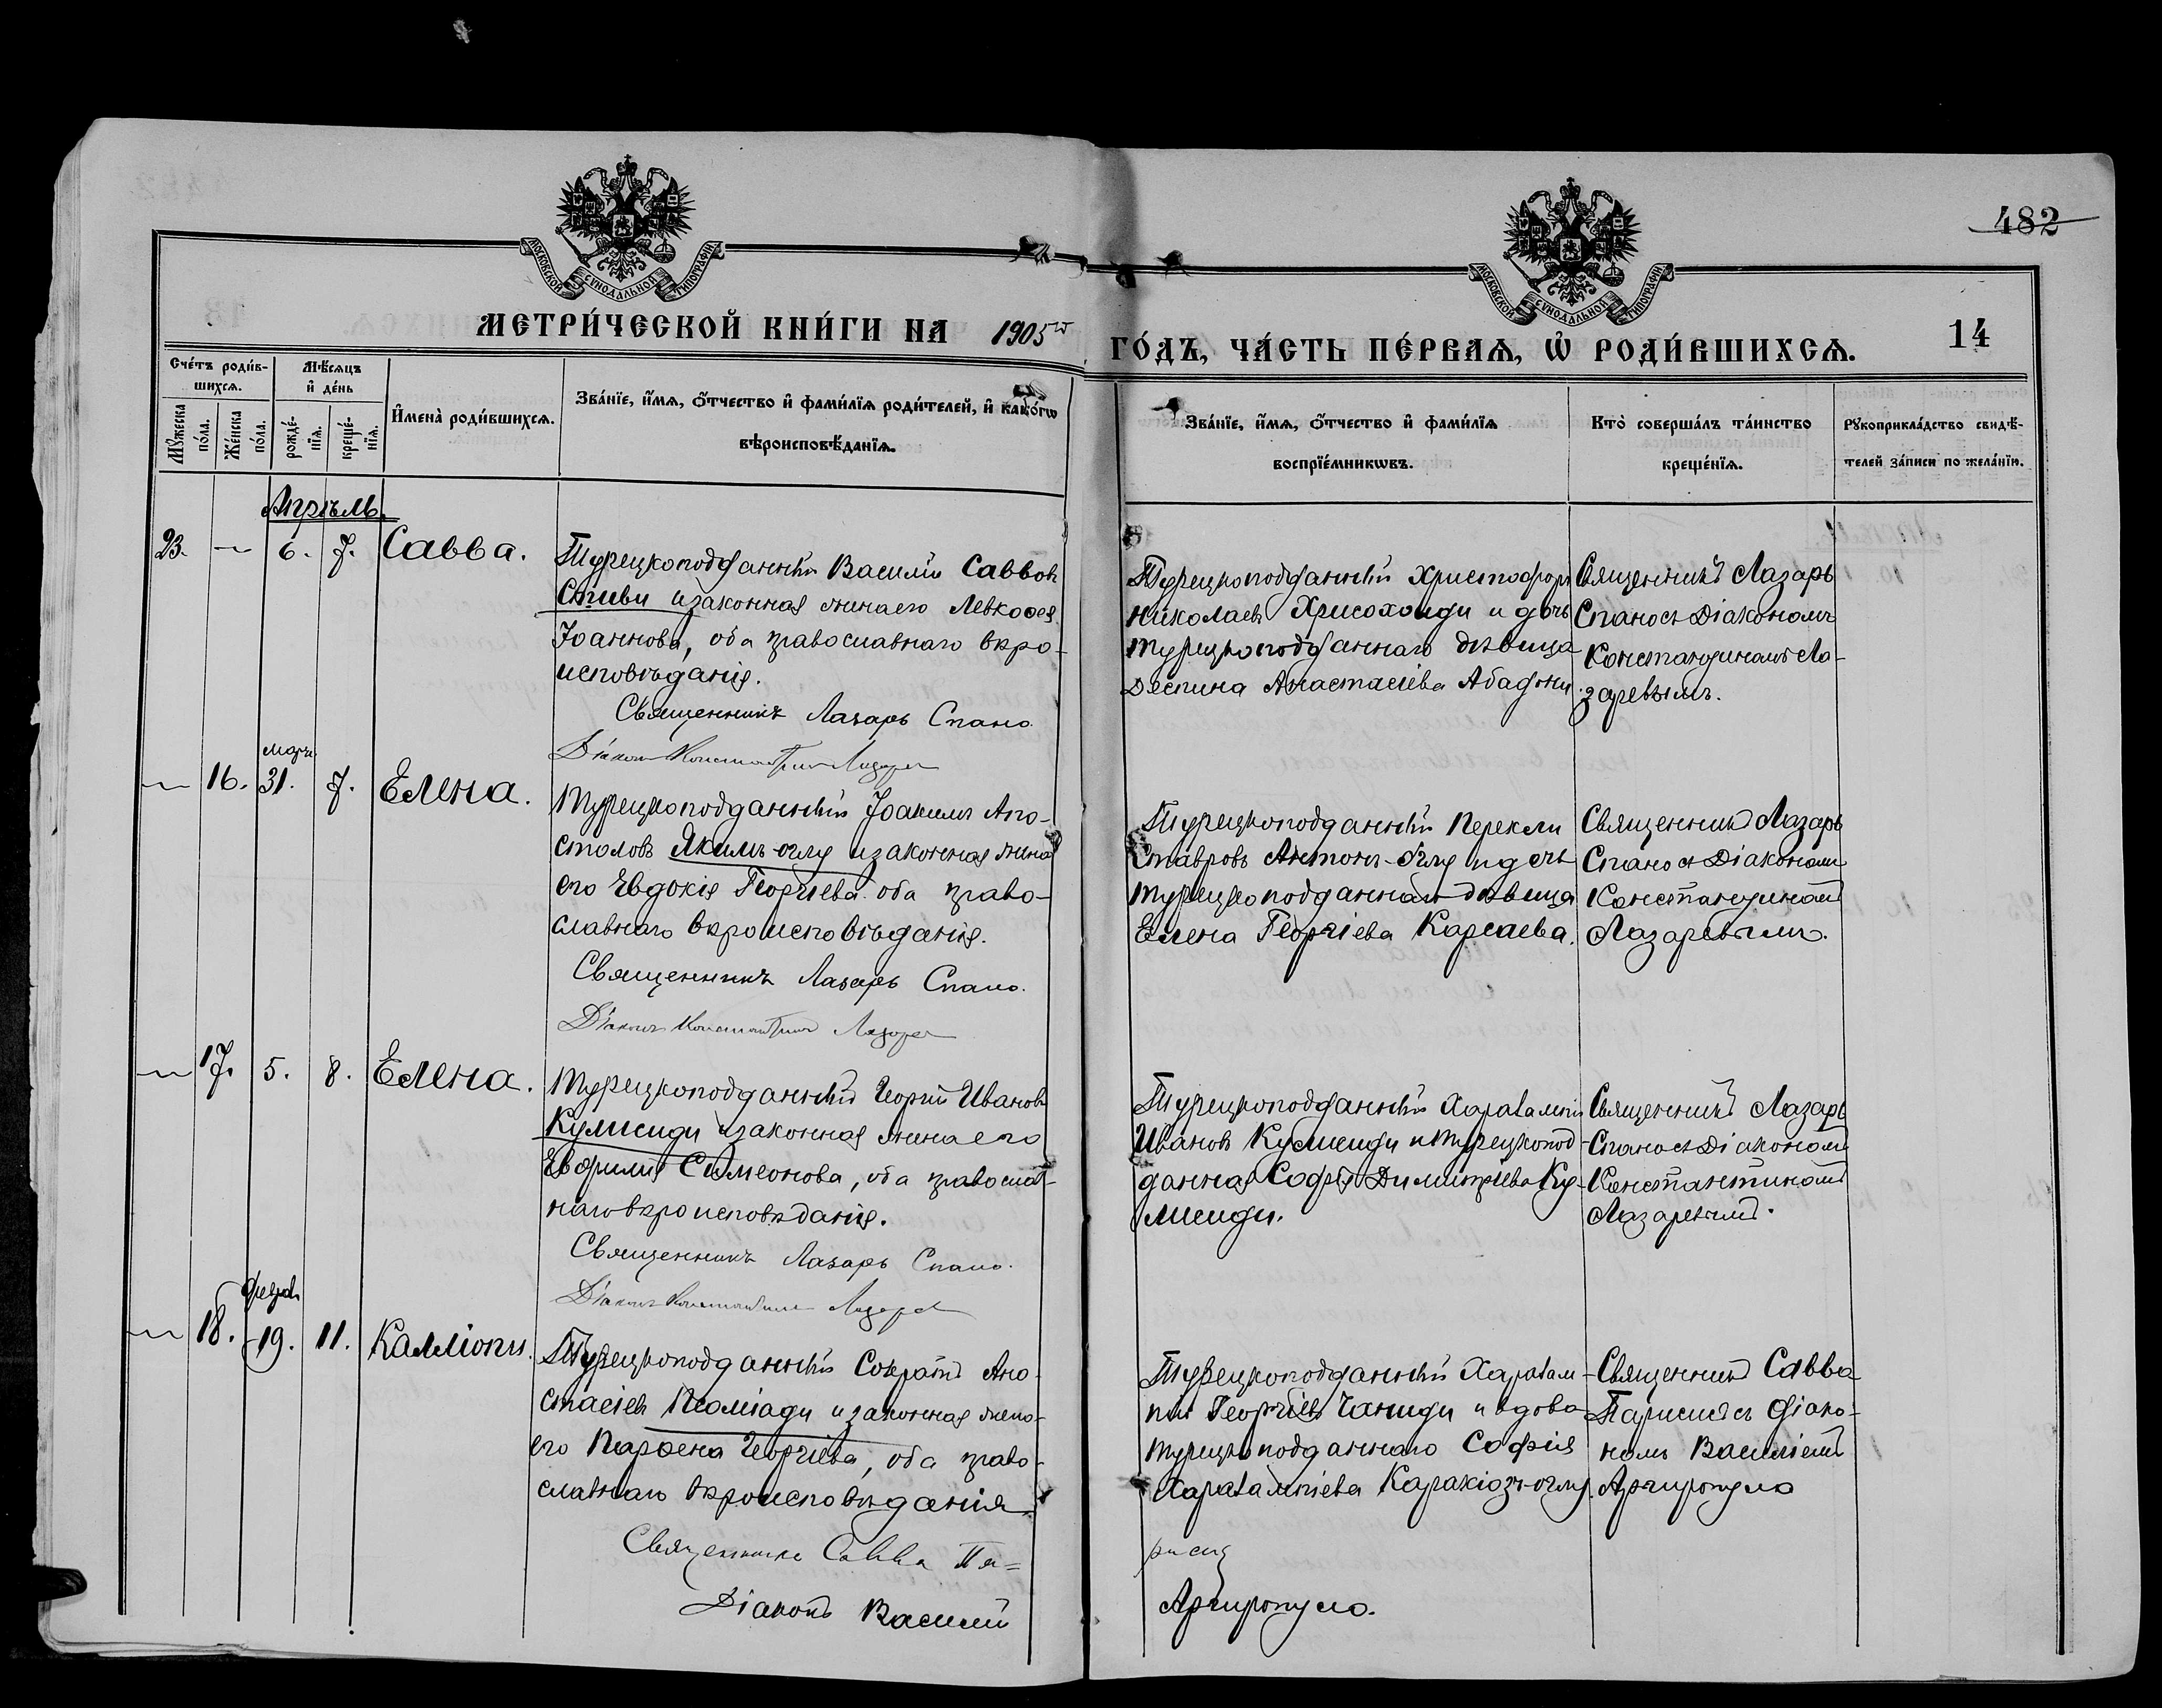 482
МОСКОВСКОЙ СѴНОДАЛЬНОЙ ТИПОГРАФІИ
МОСКОВСКОЙ СѴНОДАЛЬНОЙ ТИПОГРАФІИ
МЕТРИ́ЧЕСКОЙ КНИ́ГИ НА 1905й ГО́ДЪ, ЧА́СТЬ ПЕ́РВАѦ, Ѡ҆ РОДИ́ВШИХСѦ.
14
Сче́тъ роди́в-
шихсѧ.
Мꙋ́жеска по́ла.
Же́нска по́ла.
Мѣ́сѧцъ и҆ де́нь
рожде́-
нїѧ.
креще́-
нїѧ.
И҆мена̀ роди́вшихсѧ.
Зва́нїе, и҆́мѧ, ѻ҆́тчество и҆ фами́лїѧ роди́телей, и҆ како́гѡ
вѣроисповѣ́данїѧ.
Зва́нїе, и҆́мѧ, ѻ҆́тчество и҆ фами́лїѧ
воспрїе́мникѡвъ.
Кто̀ соверша́лъ та́инство
креще́нїѧ.
Рꙋкоприкла́дство свидѣ́-
телей за́писи по жела́нїю.
Апрѣль.
23. — 6. 7. Савва.
Турецкоподданный Василій Саввов
Стиви и законная жена его Левкоѳея
Іоаннова, оба православнаго вѣро-
исповѣданія.
Священникъ Лазарь Спано.
Діаконъ Константинъ Лазарев
Турецкоподданный Христофоръ
Николаевъ Хрисохоиди и дочь
турецкоподданнаго дѣвица
Деспина Анастасіева
Священникъ Лазарь
Спано съ Діакономъ
Константиномъ Ла-
заревымъ.
— 16. март. 31. 7. Елена.
Турецкоподданный Іоакимъ Апо-
столовъ Якимъ-оглу и законная жена
его Евдокія Георгіева оба право-
славнаго вѣроисповѣданія.
Священникъ Лазарь Спано.
Діаконъ Константинъ Лазарев
Турецкоподданный Перекли
Ставровъ Антонъ-Оглу и дочь
турецкоподданнаго дѣвица
Елена Георгіева
Священникъ Лазарь
Спано съ Діакономъ
Константиномъ
Лазаревымъ.
— 17. 5. 8. Елена.
Турецкоподданный Георгій Ивановъ
Кулисиди и законная жена его
Симеонова, оба православ-
наго вѣроисповѣданія.
Священникъ Лазарь Спано.
Діаконъ Константинъ Лазарев
Турецкоподданный Харалампій
Ивановъ Кулисиди и турецкопод-
данная Софія Димитріева Ку-
лисиди.
Священникъ Лазарь
Спано съ Діакономъ
Константиномъ
Лазаревымъ.
— 18. феврал. 19. 11. Калліопи.
Турецкоподданный Сократъ Ана-
стасіевъ и законная жена
его Парѳена Георгіева, оба право-
славнаго вѣроисповѣданія.
Священникъ Савва Па=
рисис
Діаконъ Василій
Аргиропуло.
Турецкоподданный Харалам-
пій Георгіевъ Чаниди и вдова
турецкоподданнаго Софія
Харалампіева Каракіозъ-оглу.
Священникъ Савва
Парисисъ съ діако-
номъ Василіемъ
Аргиропуло